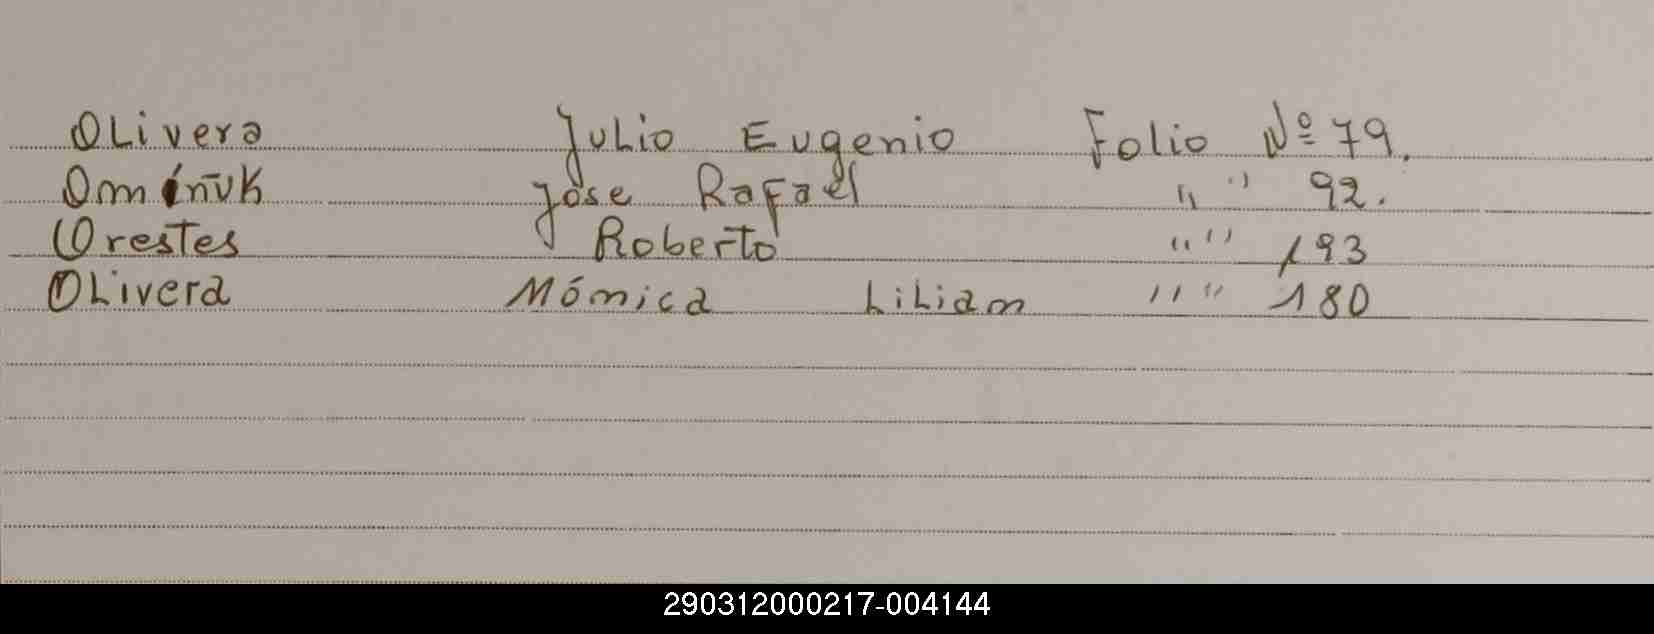 Olivera Julio Eugenio Folio Nº 79.
Omínuk Jose Rafael " " 92.
Orestes Roberto " " 193
Olivera Mónica Lilian " " 180
290312000217-004144